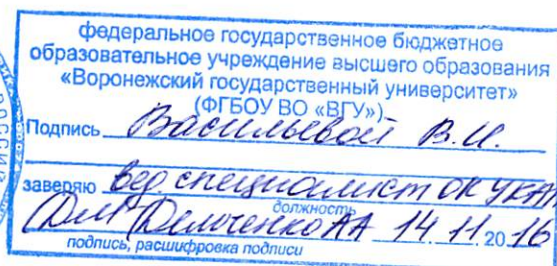 федеральное государственное бюджетное
образовательное учреждение высшего образования
«Воронежский государственный университет»
(ФГБОУ ВО «ВГУ»)
Подпись Васильевой В.И.
заверяю вед. специалист ОК УКАП
должность
А.А. 14.11.2016
подпись, расшифровка подписи
РОССИЙ